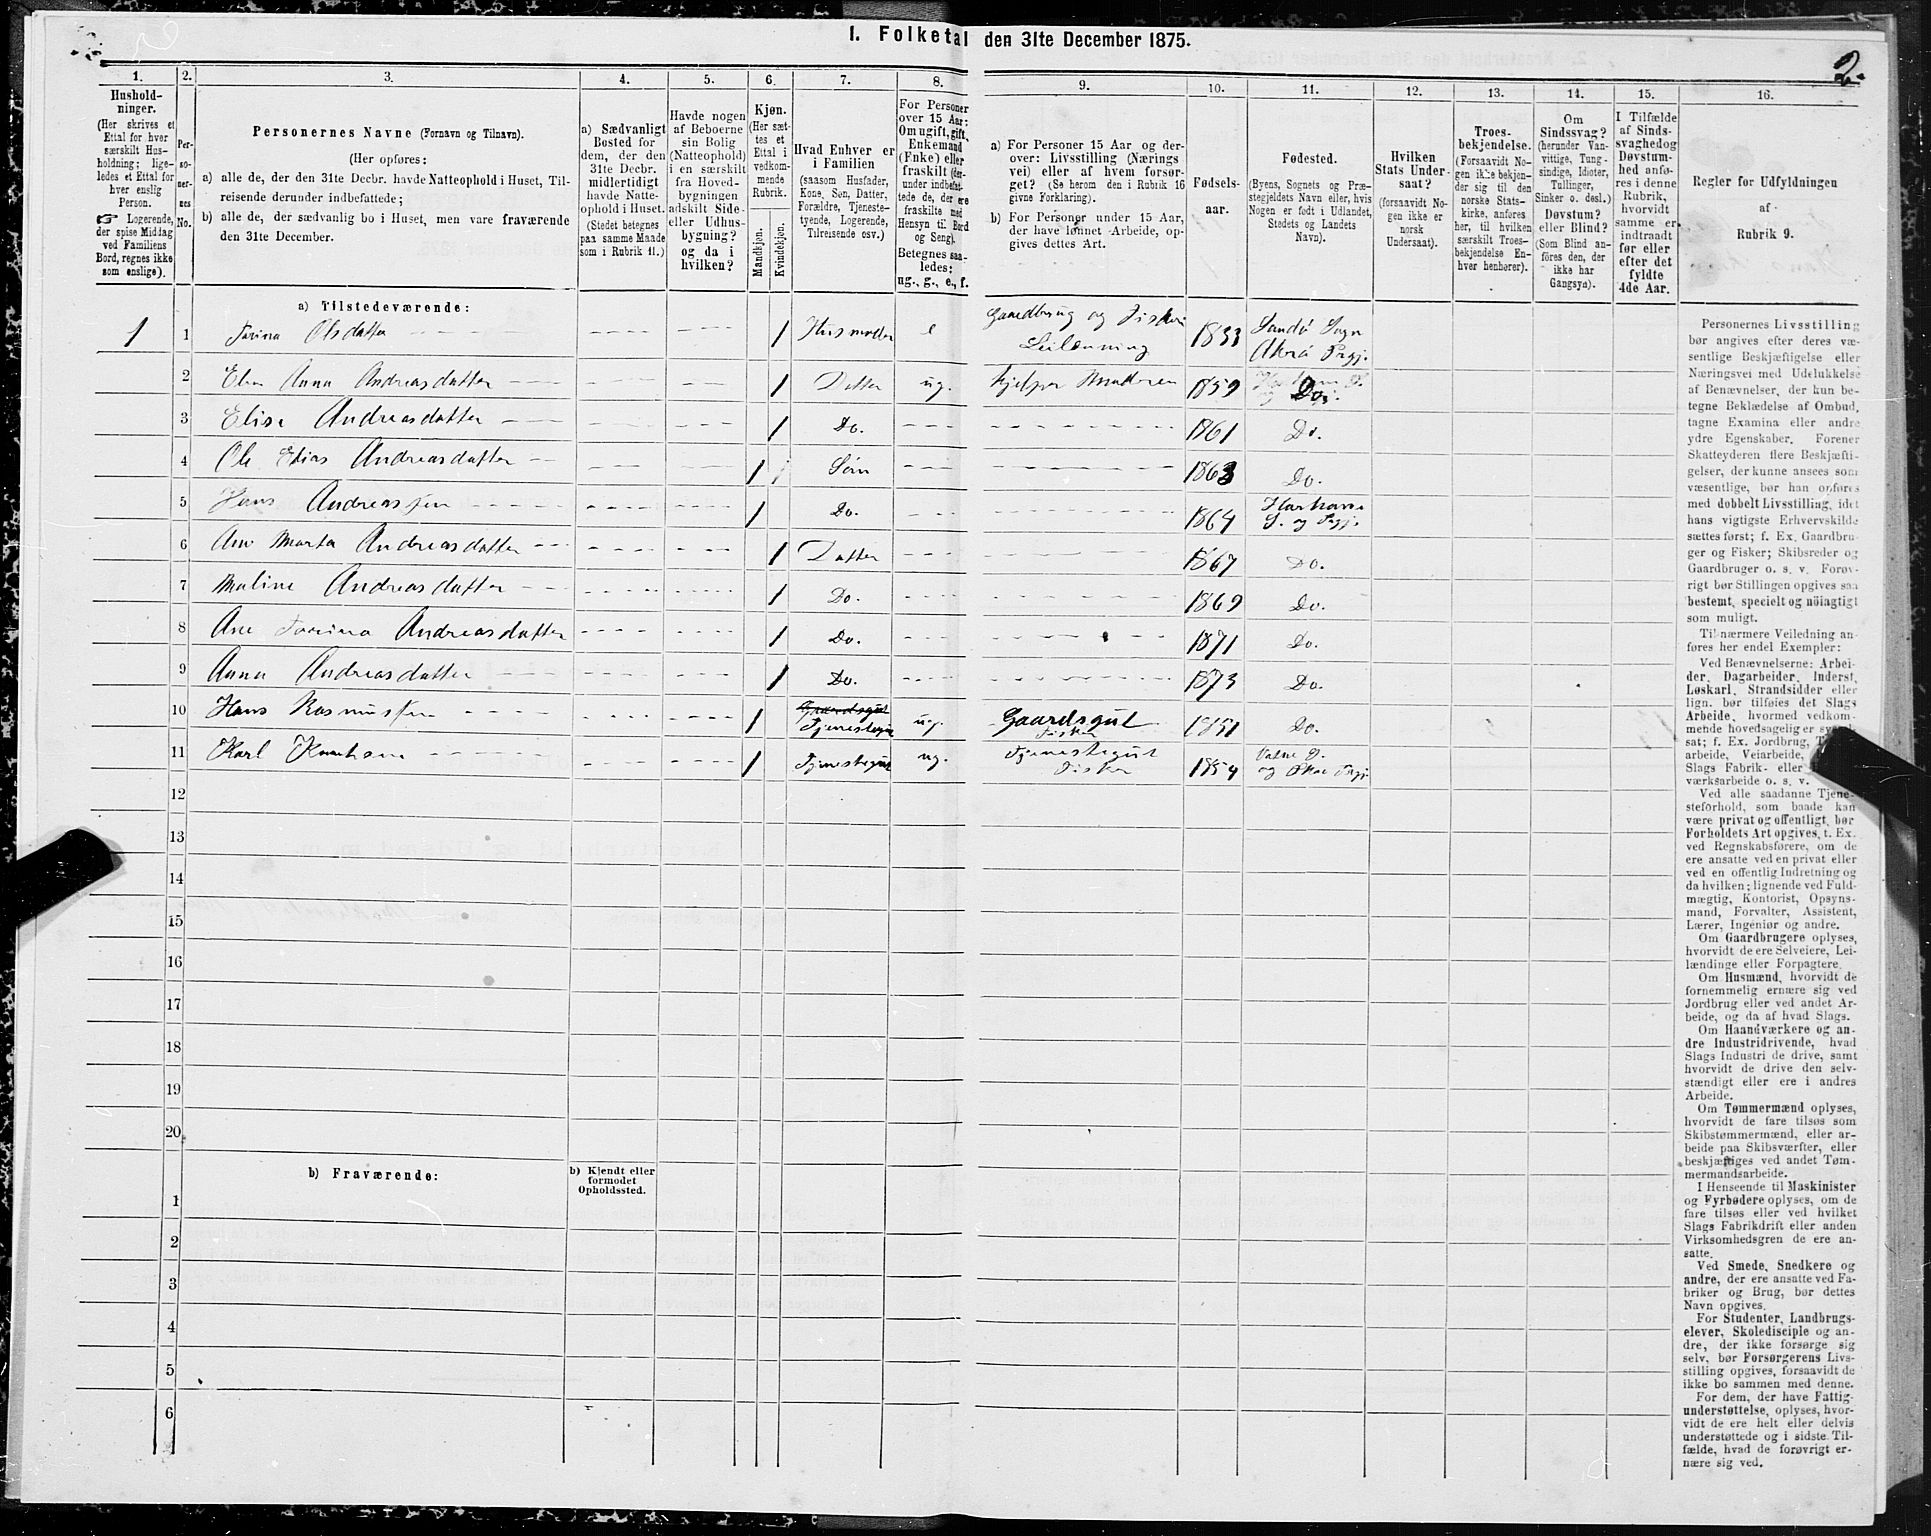 I. Folketal den 31te December 1875.
2.
1.
Hushold-
ninger.
(Her skrives et
Ettal for hver
særskilt Hus-
holdning; lige-
ledes et Ettal for
hver enslig
Person.
☞ Logerende,
der spise Middag
ved Familiens
Bord, regnes ikke
som enslige).
2.
Per-
so-
ner-
nes
No.
3.
Personernes Navne (Fornavn og Tilnavn).
(Her opføres:
a) alle de, der den 31te Decbr. havde Natteophold i Huset, Til-
reisende derunder indbefattede;
b) alle de, der sædvanlig bo i Huset, men vare fraværende
den 31te December.
4.
a) Sædvanligt
Bosted for
dem, der den
31te Decbr.
midlertidigt
havde Natte-
ophold i Huset.
(Stedet betegnes
paa samme Maade
som i Rubrik 11.)
5.
Havde nogen
af Beboerne
sin Bolig
(Natteophold)
i en særskilt
fra Hoved-
bygningen
adskilt Side-
eller Udhus-
bygning?
og da i
hvilken?
6.
Kjøn.
(Her sæt-
tes et
Ettal i
vedkom-
mende
Rubrik.
Mandkjøn.
Kvindekjøn.
7.
Hvad Enhver er
i Familien
(saasom Husfader,
Kone, Søn, Datter,
Forældre, Tjeneste-
tyende, Logerende,
Tilreisende osv.)
8.
For Personer
over 15 Aar:
Om ugift, gift,
Enkemand
(Enke) eller
fraskilt (der-
under indbefat-
tede de, der ere
fraskilte med
Hensyn til Bord
og Seng).
Betegnes saa-
ledes:
ug., g., e., f.
9.
a) For Personer 15 Aar og der-
over: Livsstilling (Nærings
vei) eller af hvem forsør-
get? (Se herom den i Rubrik 16
givne Forklaring).
b) For Personer under 15 Aar,
der have lønnet Arbeide, op-
gives dettes Art.
10.
Fødsels-
aar.
11.
Fødested.
(Byens, Sognets og Præ-
stegjeldets Navn eller, hvis
Nogen er født i Udlandet,
Stedets og Landets
Navn).
12.
Hvilken
Stats Under-
saat?
(forsaavidt No-
gen ikke er
norsk
Undersaat).
13.
Troes-
bekjendelse.
(Forsaavidt No-
gen ikke bekjen-
der sig til den
norske Stats-
kirke, anføres
her, til hvilken
særskilt Troes-
bekjendelse En-
hver henhører).
14.
Om
Sindssvag?
(herunder Van-
vittige, Tung-
sindige, Idioter,
Tullinger,
Sinker o. desl.)
Døvstum?
eller Blind?
(Som Blind an-
føres den, der
ikke har
Gangsyn).
15.
I Tilfælde
af Sinds-
svaghed og
Døvstum-
hed anfø-
res i denne
Rubrik,
hvorvidt
samme er
indtraadt
før eller
efter det
fyldte
4de Aar.
16.
Regler for Udfyldningen
af
Rubrik 9.
a) Tilstedeværende:
1 1 Olsdatter 1 Husmoder e Gaardbrug og Fiskeri Leilænning 1833 Sandø Sogn
2 Anna Andreasdatter 1 Datter ug. hjelper Moderen 1859 Do.
3 Elise Andreasdatter 1 Do. 1861 Do.
4 Ole Elias Andreasdatter 1 Søn 1863 Do.
5 Hans Andreassen 1 Do. 1864 S. og Prgj.
6 Ane Marta Andreasdatter 1 Datter 1867 Do.
7 Maline Andreasdatter 1 Do. 1869 Do.
8 Ane Andreasdatter 1 Do. 1871 Do.
9 Anna Andreasdatter 1 Do. 1873 Do.
10 Hans Rasmussen 1 Gaardsgut Tjenestegut ug. Gaardsgut Fisker 1851 Do.
11 Karl Knudsen 1 Tjenestegut ug. Tjenestegut Fisker 1854
12
13
14
15
16
17
18
19
20
b) Fraværende:
b) Kjendt eller
formodet
Opholdssted.
1
2
3
4
5
6
Personernes Livsstilling
bør angives efter deres væ-
sentlige Beskjæftigelse eller
Næringsvei med Udelukkelse
af Benævnelser, der kun be-
tegne Beklædelse af Ombud,
tagne Examina eller andre
ydre Egenskaber. Forener
Skatteyderen flere Beskjæfti-
gelser, der kunne ansees som
væsentlige, bør han opføres
med dobbelt Livsstilling, idet
hans vigtigste Erhvervskilde
sættes først; f. Ex. Gaardbru-
ger og Fisker; Skibsreder og
Gaardbruger o. s. v. Forøv-
rigt bør Stillingen opgives saa
bestemt, specielt og nöiagtigt
som muligt.
Til nærmere Veiledning an-
føres her endel Exempler:
Ved Benævnelserne: Arbei-
der, Dagarbeider, Inderst,
Løskarl, Strandsidder eller
lign. bør tilføies det Slags
Arbeide, hvormed vedkom-
mende hovedsagelig er
sat; f. Ex. Jordbrug,
arbeide, Veiarbeide,
Slags Fabrik- eller
værksarbeide o. s. v.
Ved alle saadanne Tjene-
steforhold, som baade kan
være privat og offentligt, bør
Forholdets Art opgives, t. Ex.
ved Regnskabsførere, om de
ere ansatte ved en privat eller
ved en offentlig Indretning og
da hvilken; lignende ved Fuld-
mægtig, Kontorist, Opsyns-
mand, Forvalter, Assistent,
Lærer, Ingeniør og andre.
Om Gaardbrugere oplyses,
hvorvidt de ere Selveiere, Lei-
lændinge eller Forpagtere.
Om Husmænd, hvorvidt de
fornemmelig ernære sig ved
Jordbrug eller ved andet Ar-
beide, og da af hvad Slags.
Om Haandværkere og an-
dre Industridrivende, hvad
Slags Industri de drive, samt
hvorvidt de drive den selv-
stændigt eller ere i andres
Arbeide.
Om Tømmermænd oplyses,
hvorvidt de fare tilsøs som
Skibstømmermænd, eller ar-
beide paa Skibsværfter, eller
beskjæftiges ved andet Tøm-
mermandsarbeide.
I Henseende til Maskinister
og Fyrbødere oplyses, om de
fare tilsøs eller ved hvilket
Slags Fabrikdrift eller anden
Virksomhedsgren de ere an-
satte.
Ved Smede, Snedkere og
andre, der ere ansatte ved Fa-
briker og Brug, bør dettes
Navn opgives.
For Studenter, Landbrugs-
elever, Skoledisciple og an-
dre, der ikke forsørge sig
selv, bør Forsørgerens Livs-
stilling opgives, forsaavidt de
ikke bo sammen med denne.
For dem, der have Fattig-
understøttelse, oplyses, hvor-
vidt de ere helt eller delvis
understøttede og i sidste Til-
fælde, hvad de forøvrigt er-
nære sig ved.